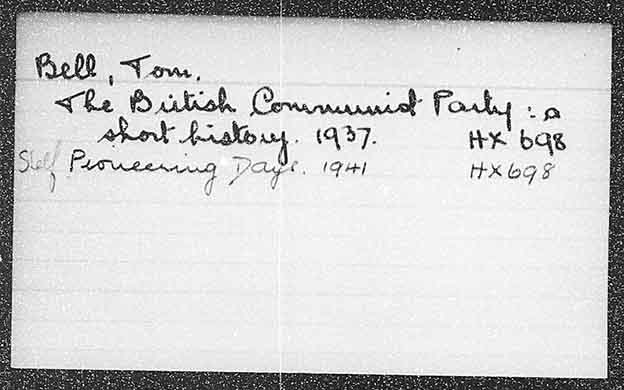 Bell, Tom.
The British Communist Party : a
short history. 1937. HX 698
Pioneering Days. 1941 HX698